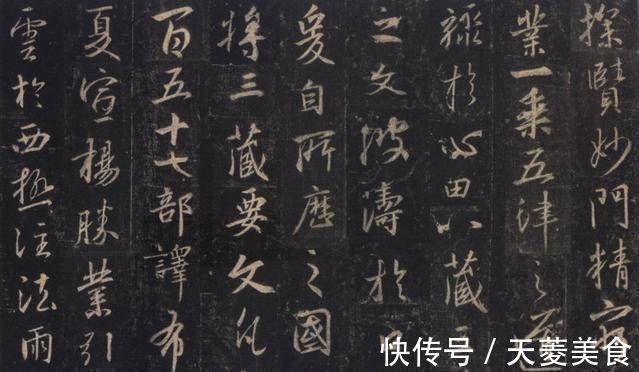 探賾妙門精
業一乘五律之道
驟於心田八藏三
之文波濤於
爰自所歷之國
將三藏要文凡
百五十七部譯布
夏宣揚勝業引
雲於西極注法雨
快传号 / 天菱美食